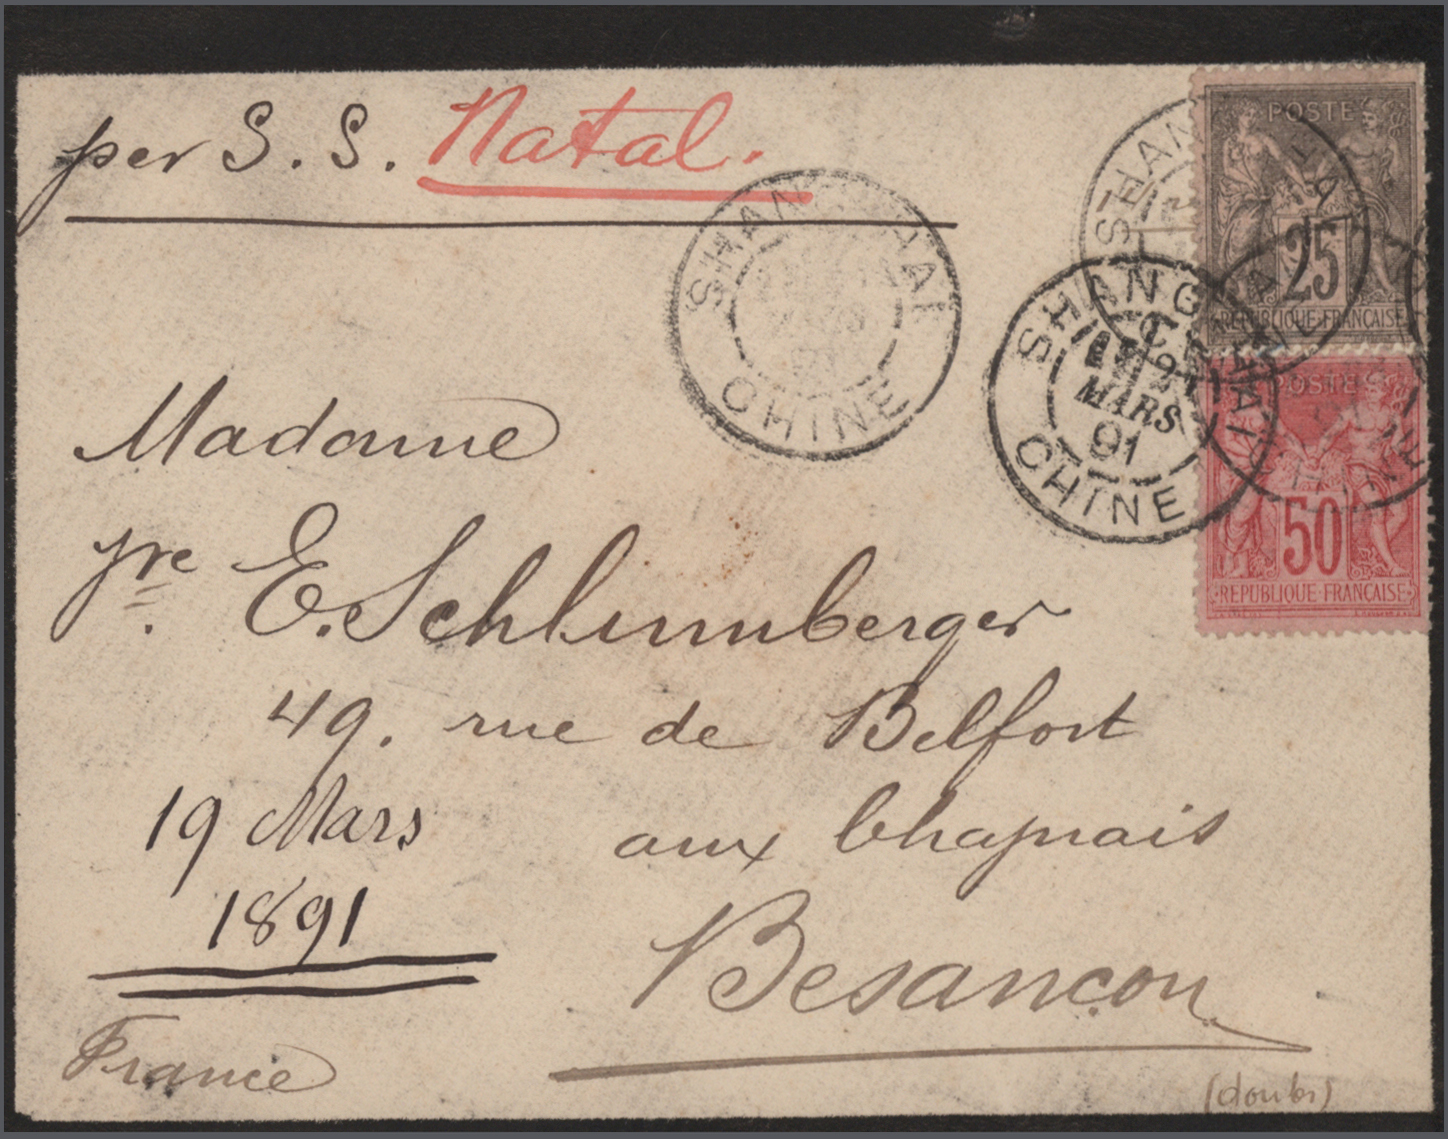 per S. S. Natal.
SHANG-HAI
MARS
CHINE
SHANG-HAI
MARS
91
CHINE
SHANG HAI
POSTE
25
REPUBLIQUE·FRANÇAISE
POSTE
50
REPUBLIQUE·FRANÇAISE
CHINE
Madame
E. Schlumberger
49. rue de Belfort
19 Mars
aux Chaprais
1891
Besançon
France
(doubs)